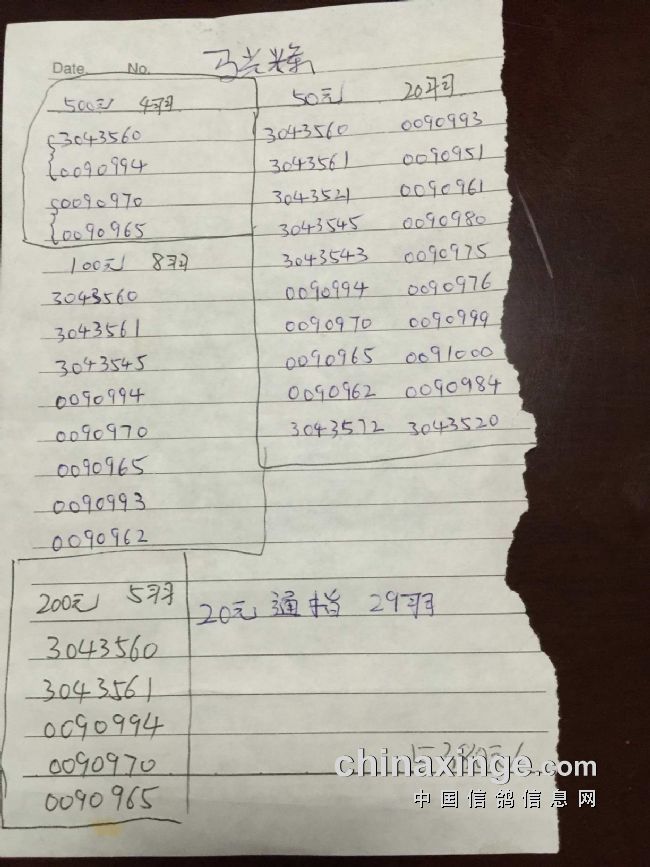 Date.    No.
马兴
500元 4羽
3043560
0090994
0090970
0090965
100元 8羽
3043560
3043561
3043545
0090994
0090970
0090965
0090993
0090962
50元 20羽
3043560 0090993
3043561 0090951
3043521 0090961
3043545 0090980
3043543 0090975
0090994 0090976
0090970 0090999
0090965 0091000
0090962 0090984
3043572 3043520
200元 5羽
3043560
3043561
0090994
0090970
0090965
20元 通指 29羽
chinaxinge.com
中国信鸽信息网